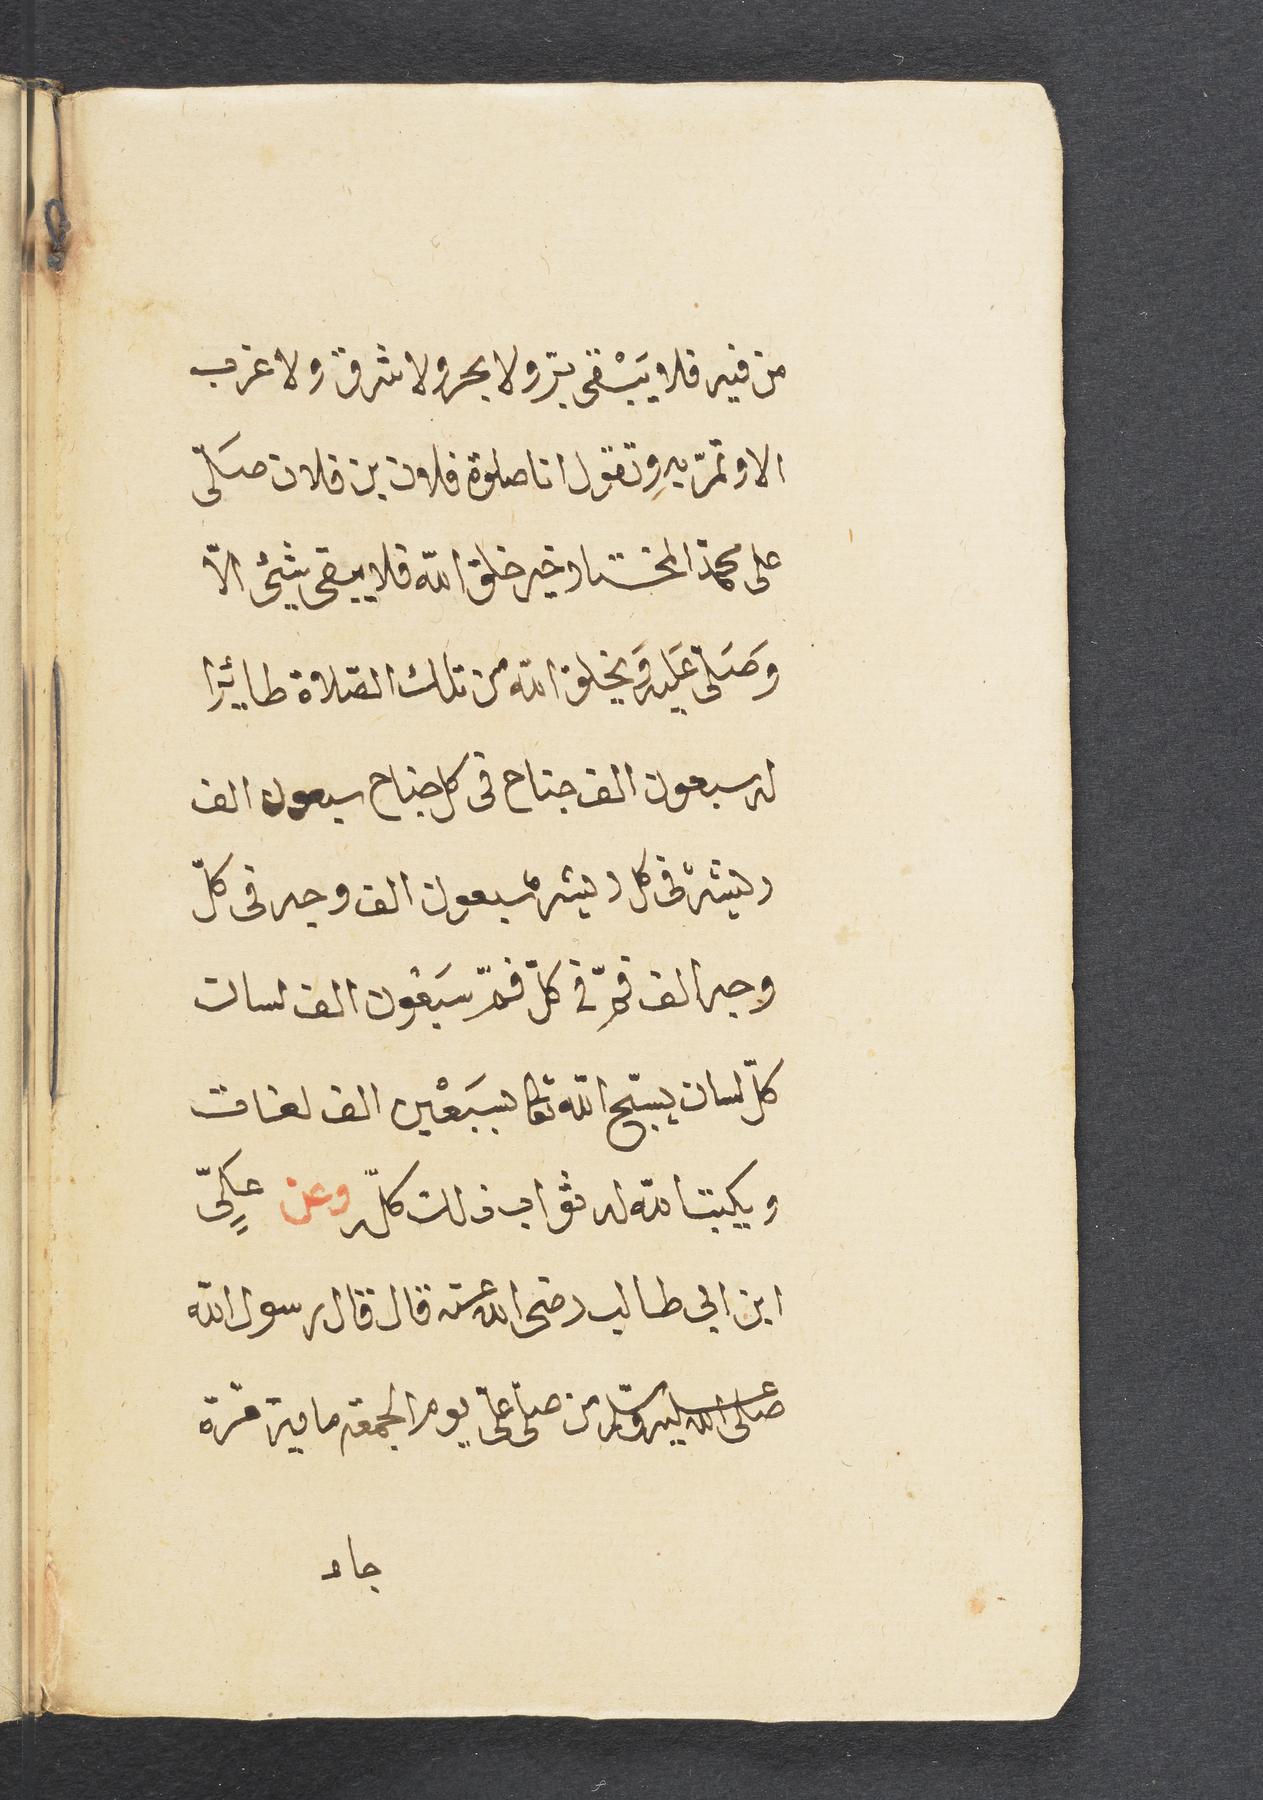 من فيه فلا يَبْقى برّ ولا بحر ولا شرق ولا غرب
الا وتمرّ بهِ وتقول انا صلوة فلان بن فلان صَلّى
على محمّد المختار خير خلق الله فلا يبقى شيئ الّا
وَصَلّى عَليه وَيخلق الله من تلك الصّلاة طائِرًا
له سبعون الف جناح فى كل جناح سبعون الف
ريشة فى كل ريشة سبعون الف وجه فى كلّ
وجه الف فمّ فى كلّ فمّ سَبعُون الف لسان
كلّ لسان يسبّح الله تعا بسَبَعْين الف لغات
ويكتب الله له ثواب ذلك كلّه وعن عَلِيّ
ابن ابى طالب رضى الله عنه قال قال رسول الله
صلى الله عليه وسلّم من صلّى علىّ يوم الجمعة ماية مّرة
جاء